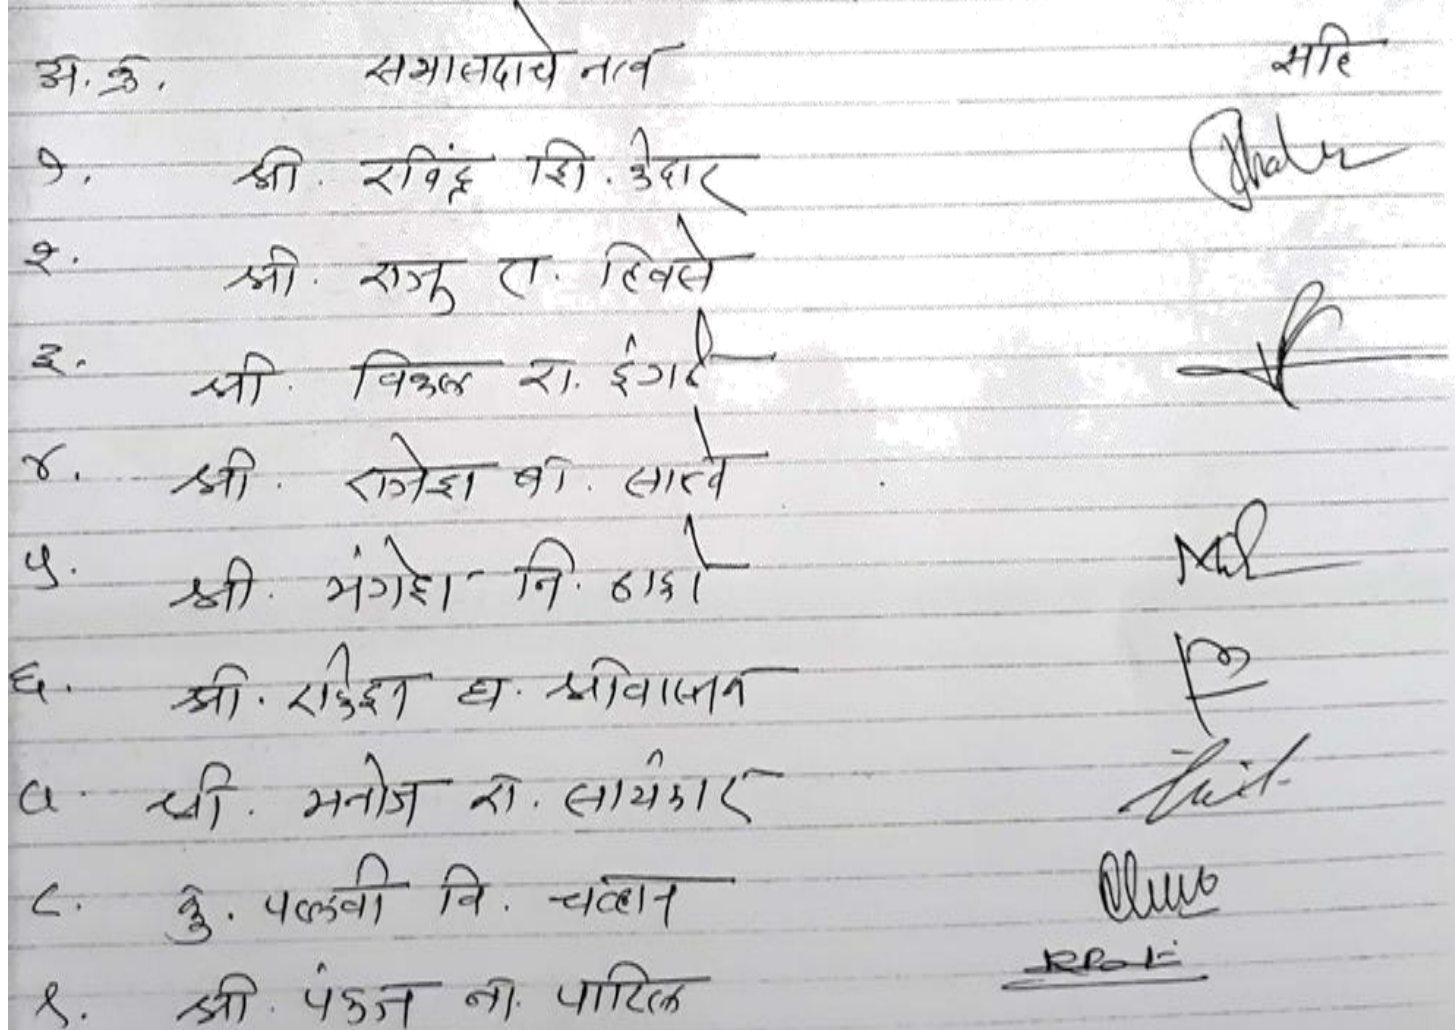 अ.क्र. सभासदाचे नाव सहि
१. श्री. रविंद्र शि. केदार
२. श्री. राजु रा. हिवसे
३. श्री. विठ्ठल रा. इंगळे
४. श्री. राजेश बी. सात्वे
५. श्री. मंगेश नि. ठाकरे
६. श्री. राकेश घ. श्रीवास्तव
७. श्री. मनोज रा. सायंकार
८. कु. पल्लवी वि. चव्हान
९. श्री. पंकज ना. पाटिल